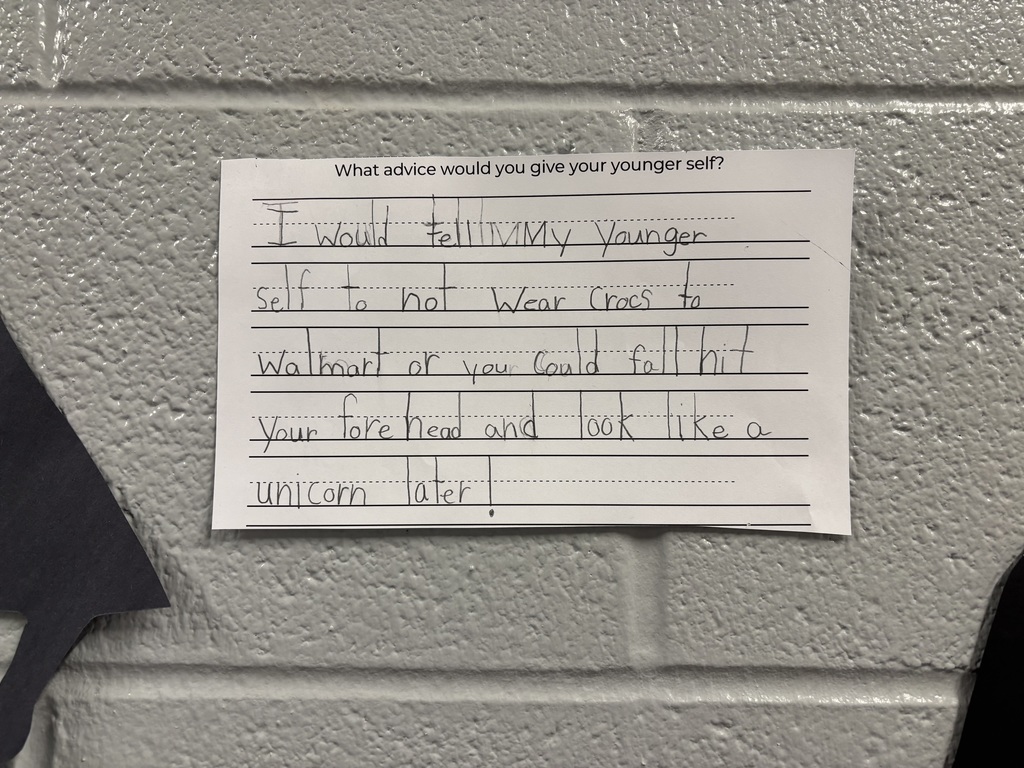 What advice would you give your younger self?
I would tell My younger
self to not wear crocs to
Walmart or you could fall hit
your fore head and look like a
unicorn later!